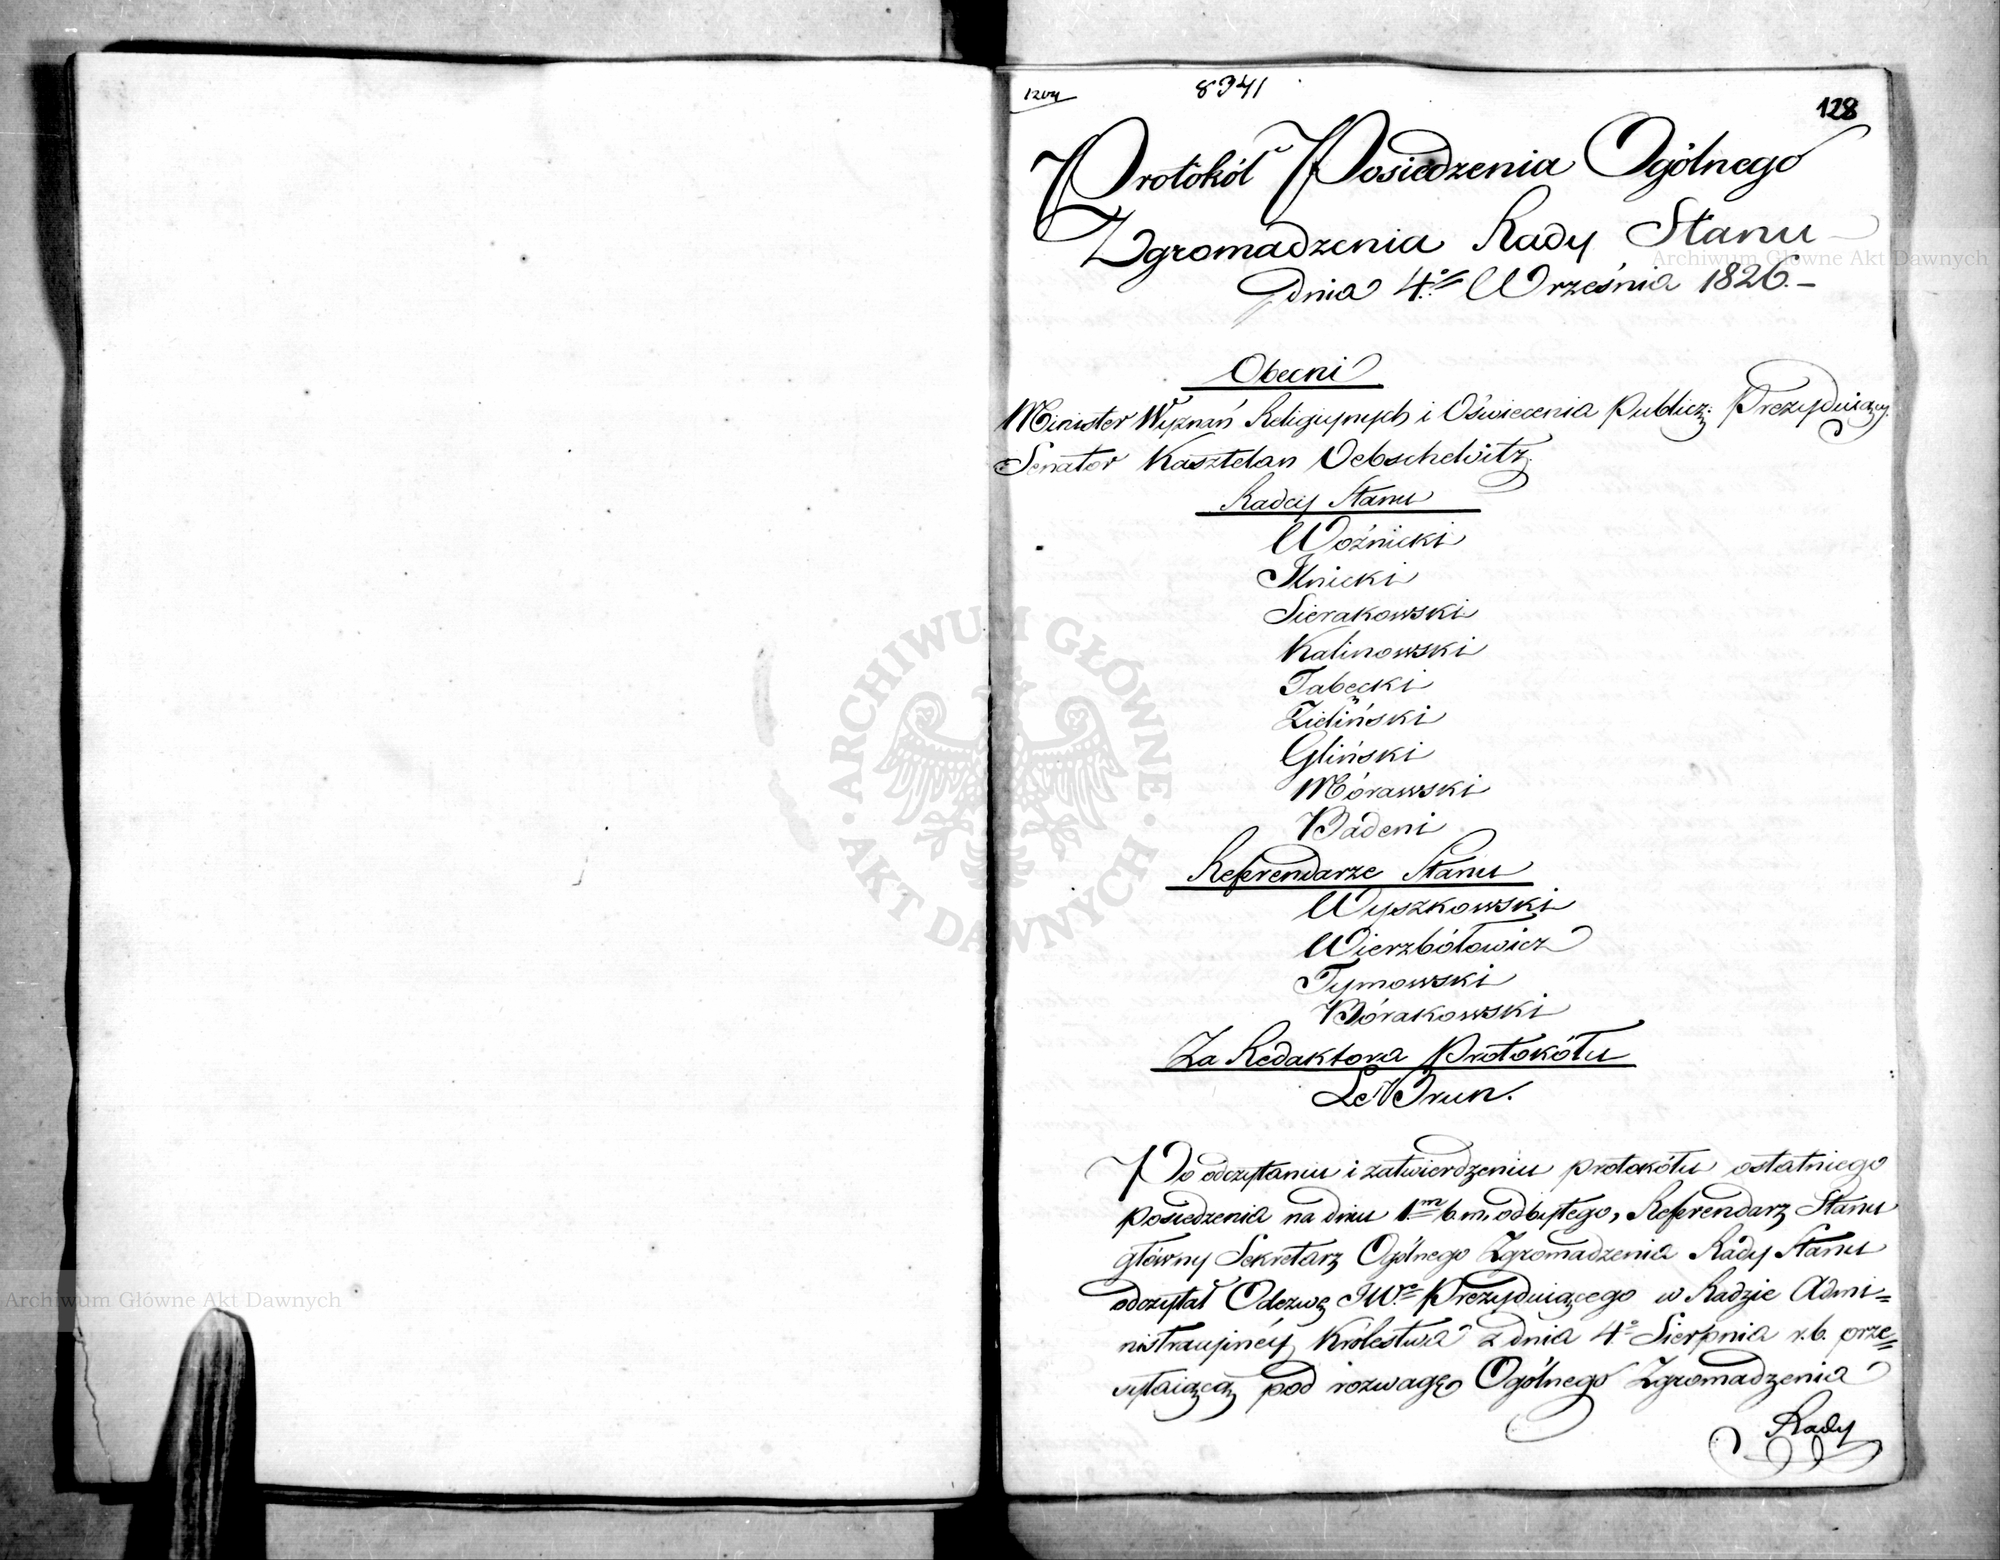 1204
8341
128
Protokół Posiedzenia Ogólnego
Zgromadzenia Rady Stanu
dnia 4º Września 1826. –
Obecni
Minister Wyznań Religijnych i Oświecenia Publicz: Prezyduiący.
Senator Kasztelan Oebschelwitz
Radcy Stanu
Woźnicki
Ilnicki
Sierakowski
Kalinowski
Tabęcki
Zieliński
Gliński
Mórawski
Badeni
Referendarze Stanu
Wyszkowski
Wierzbółowicz
Tymowski
Bórakowski
Za Redaktora Protokółu
Le Brun.
Po odczytaniu i zatwierdzeniu protokółu ostatniego
posiedzenia na dniu 1.m b.m. odbytego, Referendarz Stanu
Główny Sekretarz Ogólnego Zgromadzenia Rady Stanu
odczytał Odezwę JW.o Prezyduiącego w Radzie Admi=
nistracyjnéy Królestwa z dnia 4º Sierpnia r.b. prze=
syłaiącą pod rozwagę Ogólnego Zgromadzenia
Rady
Archiwum Główne Akt Dawnych
Archiwum Główne Akt Dawnych
ARCHIWUM GŁÓWNE
AKT DAWNYCH